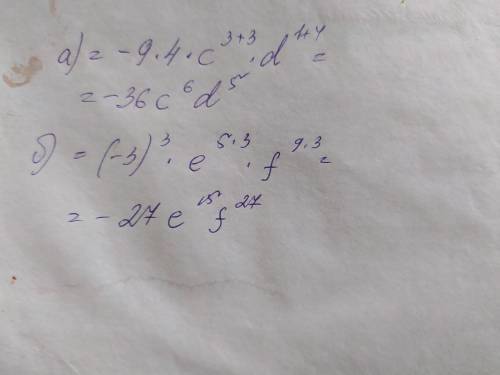 а) = -9·4·c^{3+3}·d^{1+4} =
= -36c^{6}d^{5}
б) = (-3)^{3}·e^{5·3}·f^{9·3} =
= -27e^{15}f^{27}